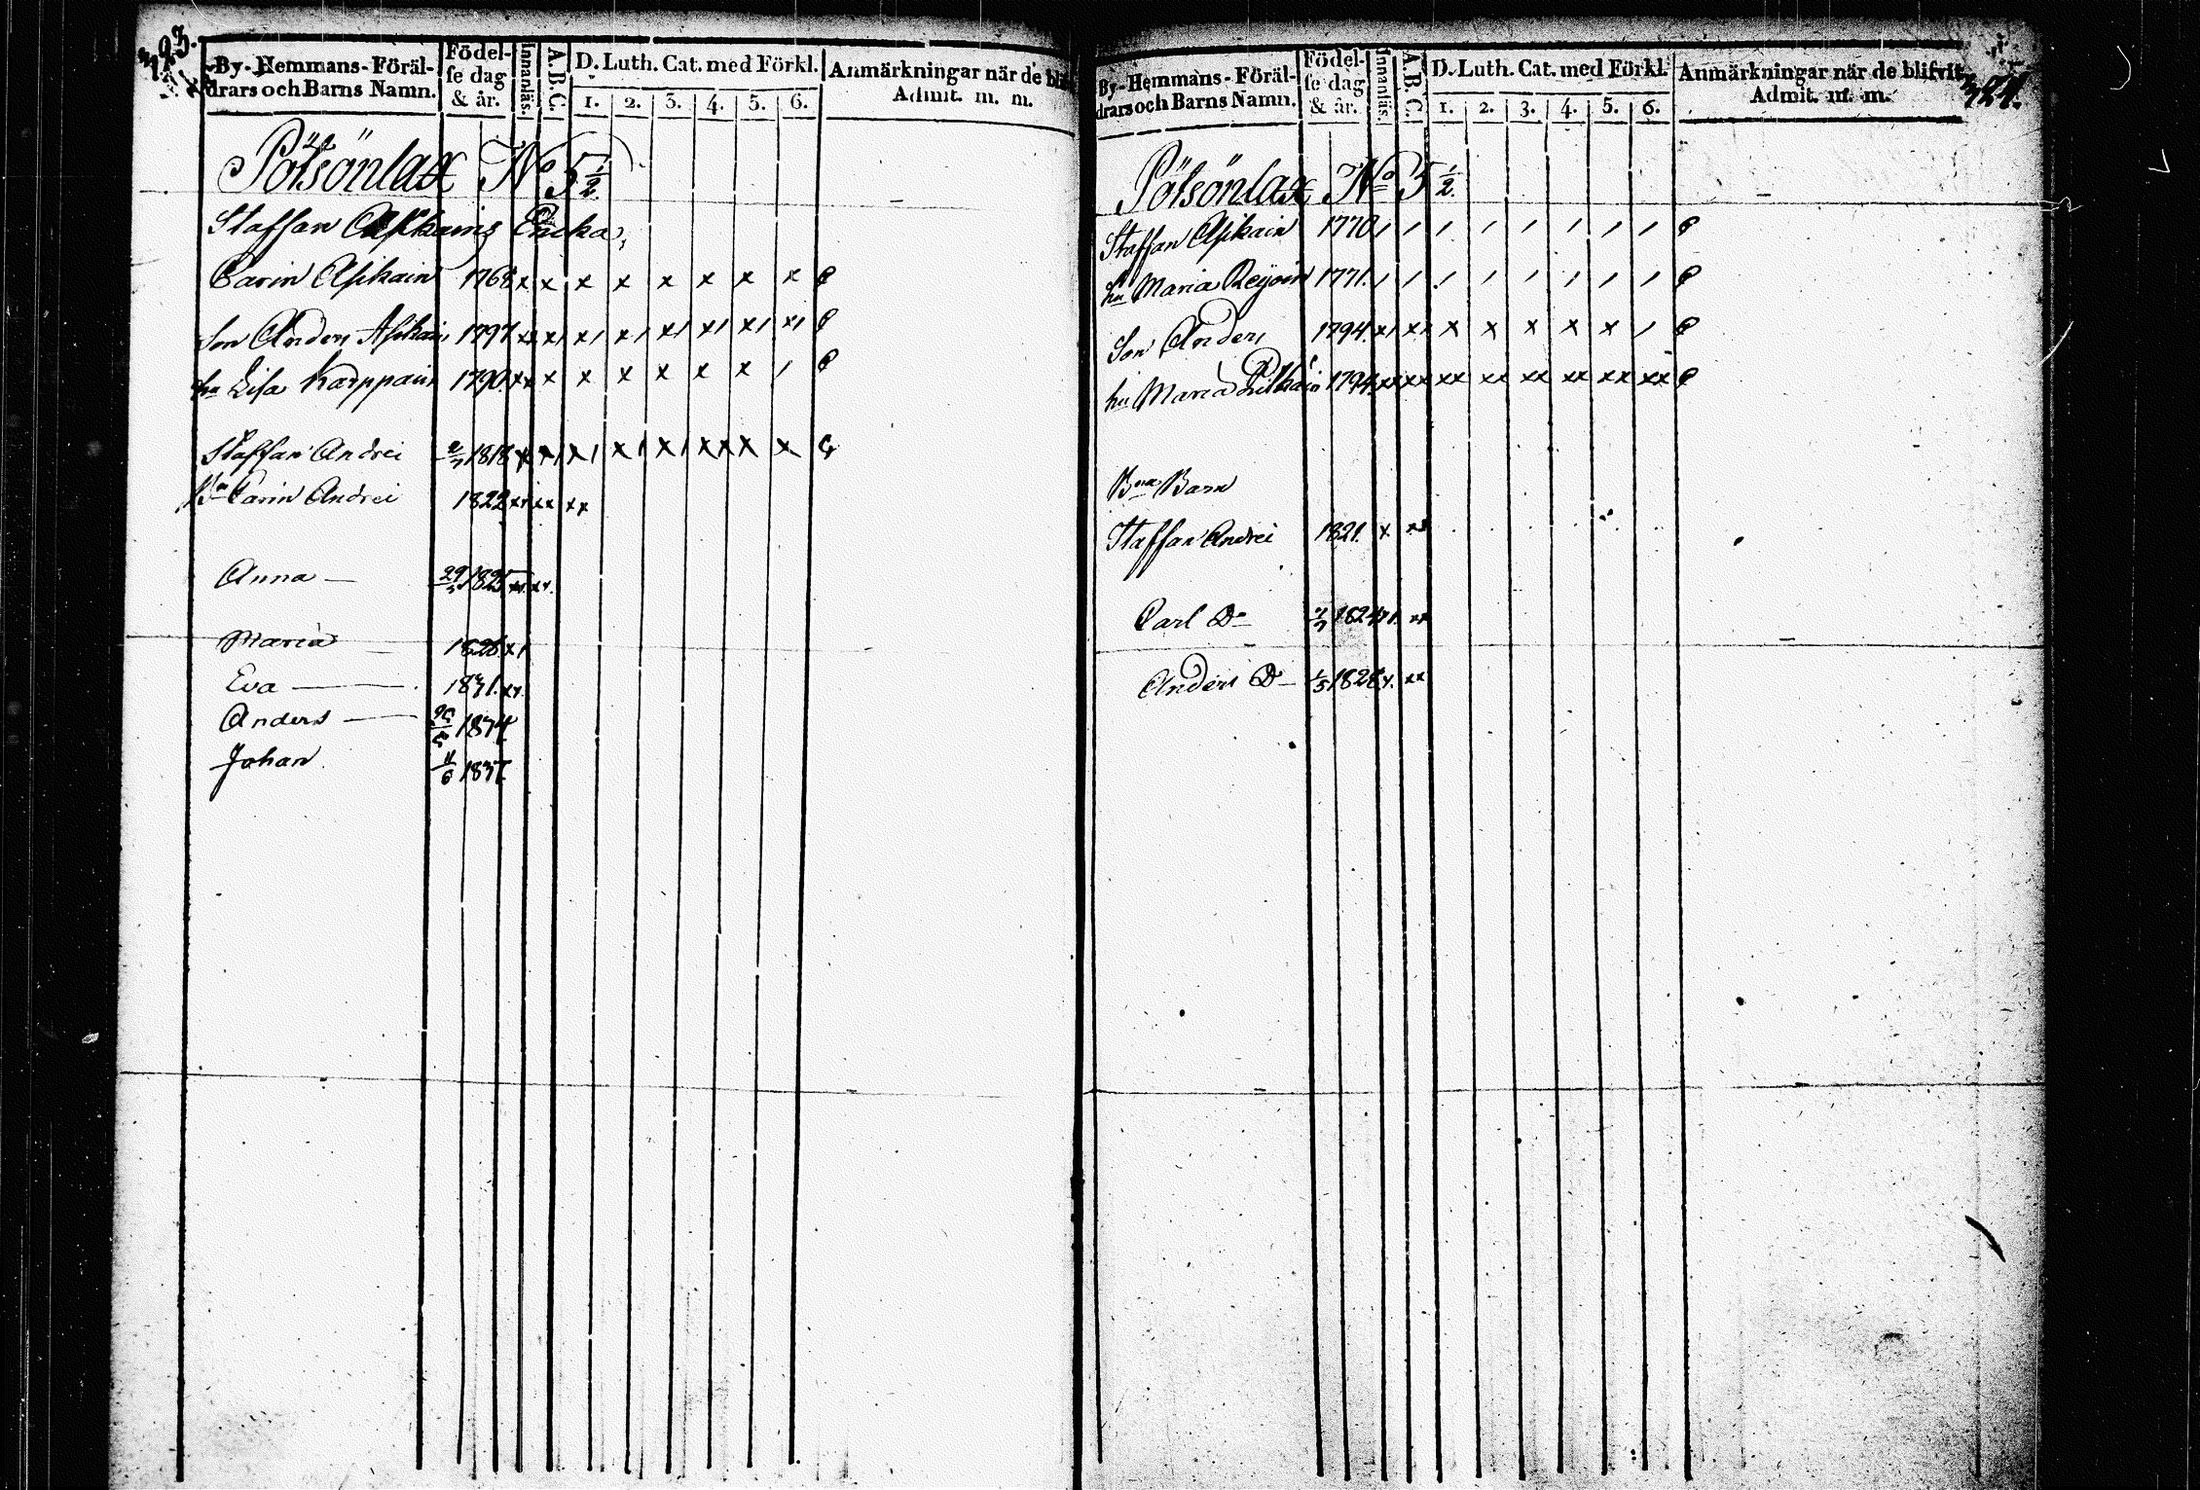 323.
By-Hemmans-Föräl-drars och Barns Namn. Födel-se dag & år. Innanläs. A.B.C. D. Luth. Cat. med Förkl. 1. 2. 3. 4. 5. 6. Anmärkningar när de blif Admit. m. m.
Pötsönlax No 5 1/2
Staffan Asikains Encka,
Carin Asikain 1768 x x x x x x x x
Son Anders Asikain 1797 xx x1 x1 x1 x1 x1 x1 x1
hu Lisa Karppain 1790. xx x x x x x x /
Staffan Andrei 1818 x x1 x1 x1 x1 xx x x
Carin Andrei 1822 xx xx xx
Anna — 29/3 1825 xx xx.
Maria — 1828 x1
Eva — 1831. xx.
Anders — 1834
Johan 11/6 1837
324.
By-Hemmans-Föräl-drars och Barns Namn. Födel-se dag & år. Innanläs. A.B.C. D. Luth. Cat. med Förkl. 1. 2. 3. 4. 5. 6. Anmärkningar när de blifvit Admit. m. m.
Pötsönlax No 5 1/2
Staffan Asikain 1770 / / / / / / / /
hu Maria Reijoin 1771. / / / / / / / /
Son Anders 1794. x1 xx x x x x x /
hu Maria 1794 xx xx xx xx xx xx xx xx
Barn
Staffan Andrei 1821. x xx
Carl Do 1824 xx
Anders Do 1/5 1828 x. xx